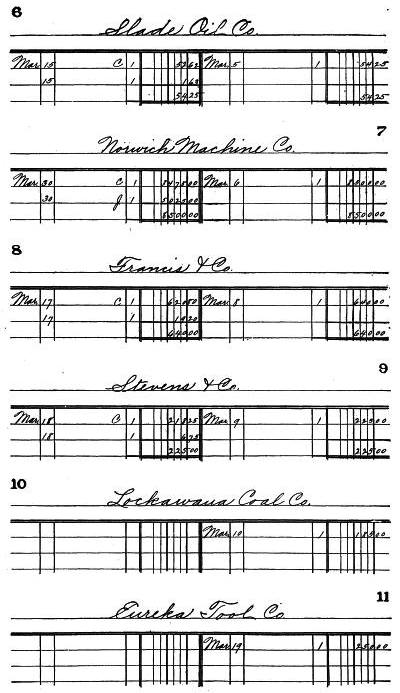 6
Slade Oil Co.
Mar. 15 C 1 5262 Mar. 5 1 5425
15 1 163
5425 5425
7
Norwich Machine Co.
Mar. 30 C 1 347500 Mar. 6 1 850000
30 J 1 502500
850000 850000
8
Francis & Co.
Mar. 17 C 1 62080 Mar. 8 1 64000
17 1 1920
64000 64000
9
Stevens & Co.
Mar. 18 C 1 21825 Mar. 9 1 22500
18 1 675
22500 22500
10
Lackawana Coal Co.
Mar. 10 1 18500
11
Eureka Tool Co
Mar. 19 1 25000